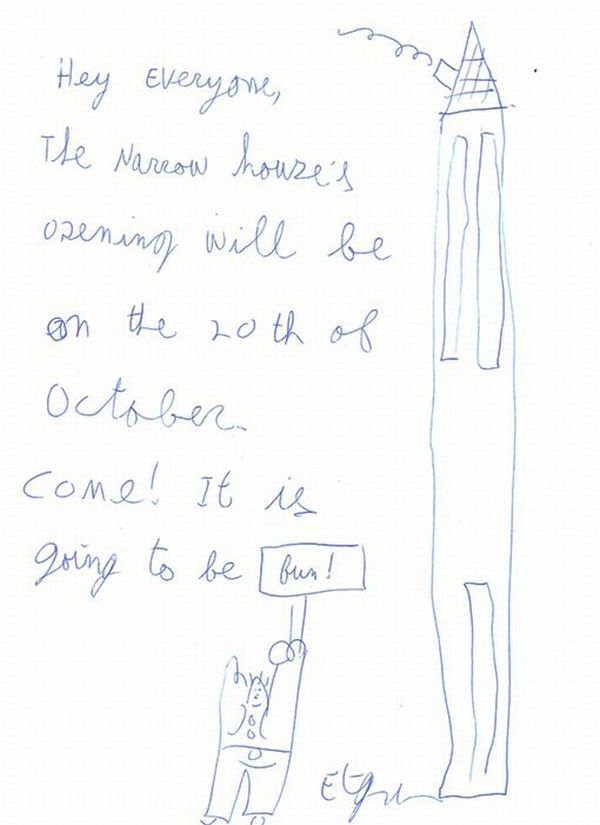 Hey Everyone,
The Narrow houze's
opening will be
on the 20th of
October.
Come! It is
going to be fun!